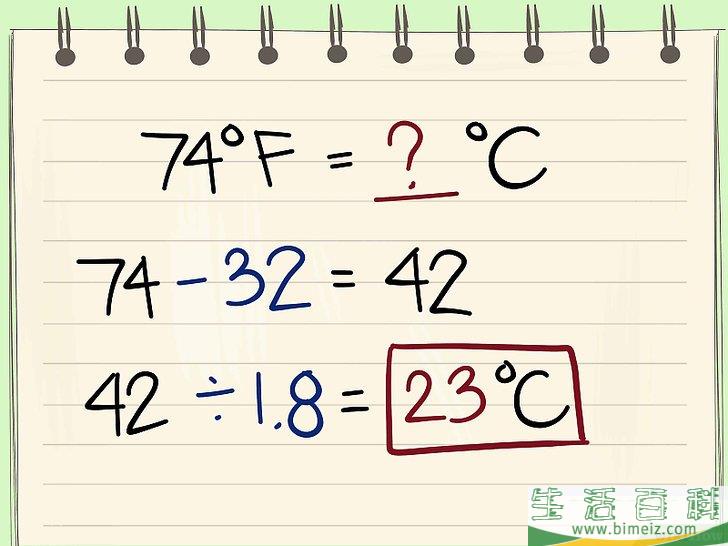 74°F = ? °C
74 - 32 = 42
42 ÷ 1.8 = 23°C
生活百科
www.bimeiz.com